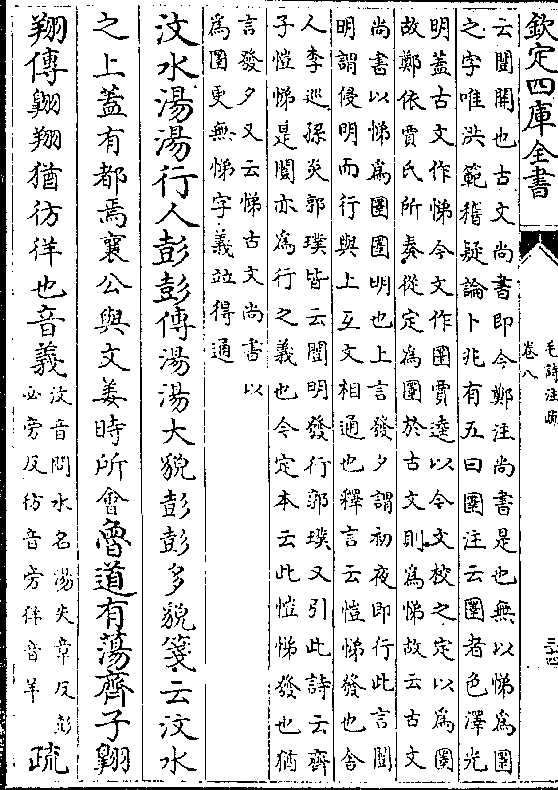 欽定四庫全書
毛詩注疏
卷八
云闓開也古文尚書即今鄭注尚書是也無以悌為圛
之字唯洪範稽疑論卜兆有五曰圛注云圛者色澤光
明蓋古文作悌今文作圛賈逵以今文校之定以為圛
故鄭依賈氏所奏從定為圛於古文則為悌故云古文
尚書以悌為圛圛明也上言發夕謂初夜即行此言闓
明謂侵明而行與上互文相通也釋言云愷悌發也舍
人李巡孫炎郭璞皆云闓明發行郭璞又引此詩云齊
子愷悌是闓亦為行之義也今定本云此愷悌發也猶
言發夕又云悌古文尚書以
為圛更無悌字義竝得通
汶水湯湯行人彭彭傳湯湯大貌彭彭多貌箋云汶水
之上蓋有都焉襄公與文姜時所會魯道有蕩齊子翺
翔傳翺翔猶彷徉也音義
汶音問水名湯失章反彭
必旁反彷音旁徉音羊
疏